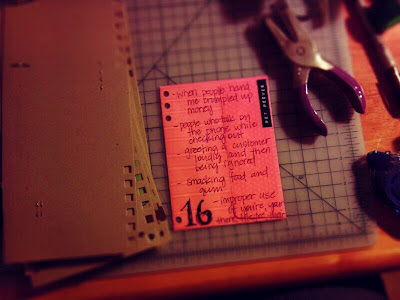 - when people hand
me crumpled up
money
- people who talk on
the phone while
checking out
- greeting a customer
loudly and then
being ignored
- smacking food and
gum
- improper use
of you're, your
there, they're, their
16
PET PEEVES